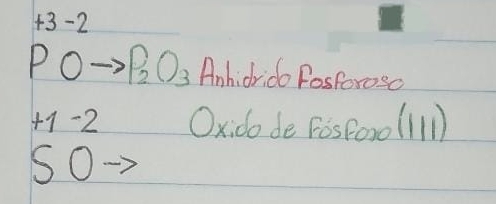 +3 -2
P O → P₂O₃ Anhidrido fosforoso
+1 -2 Oxido de Fósforo (III)
S O →